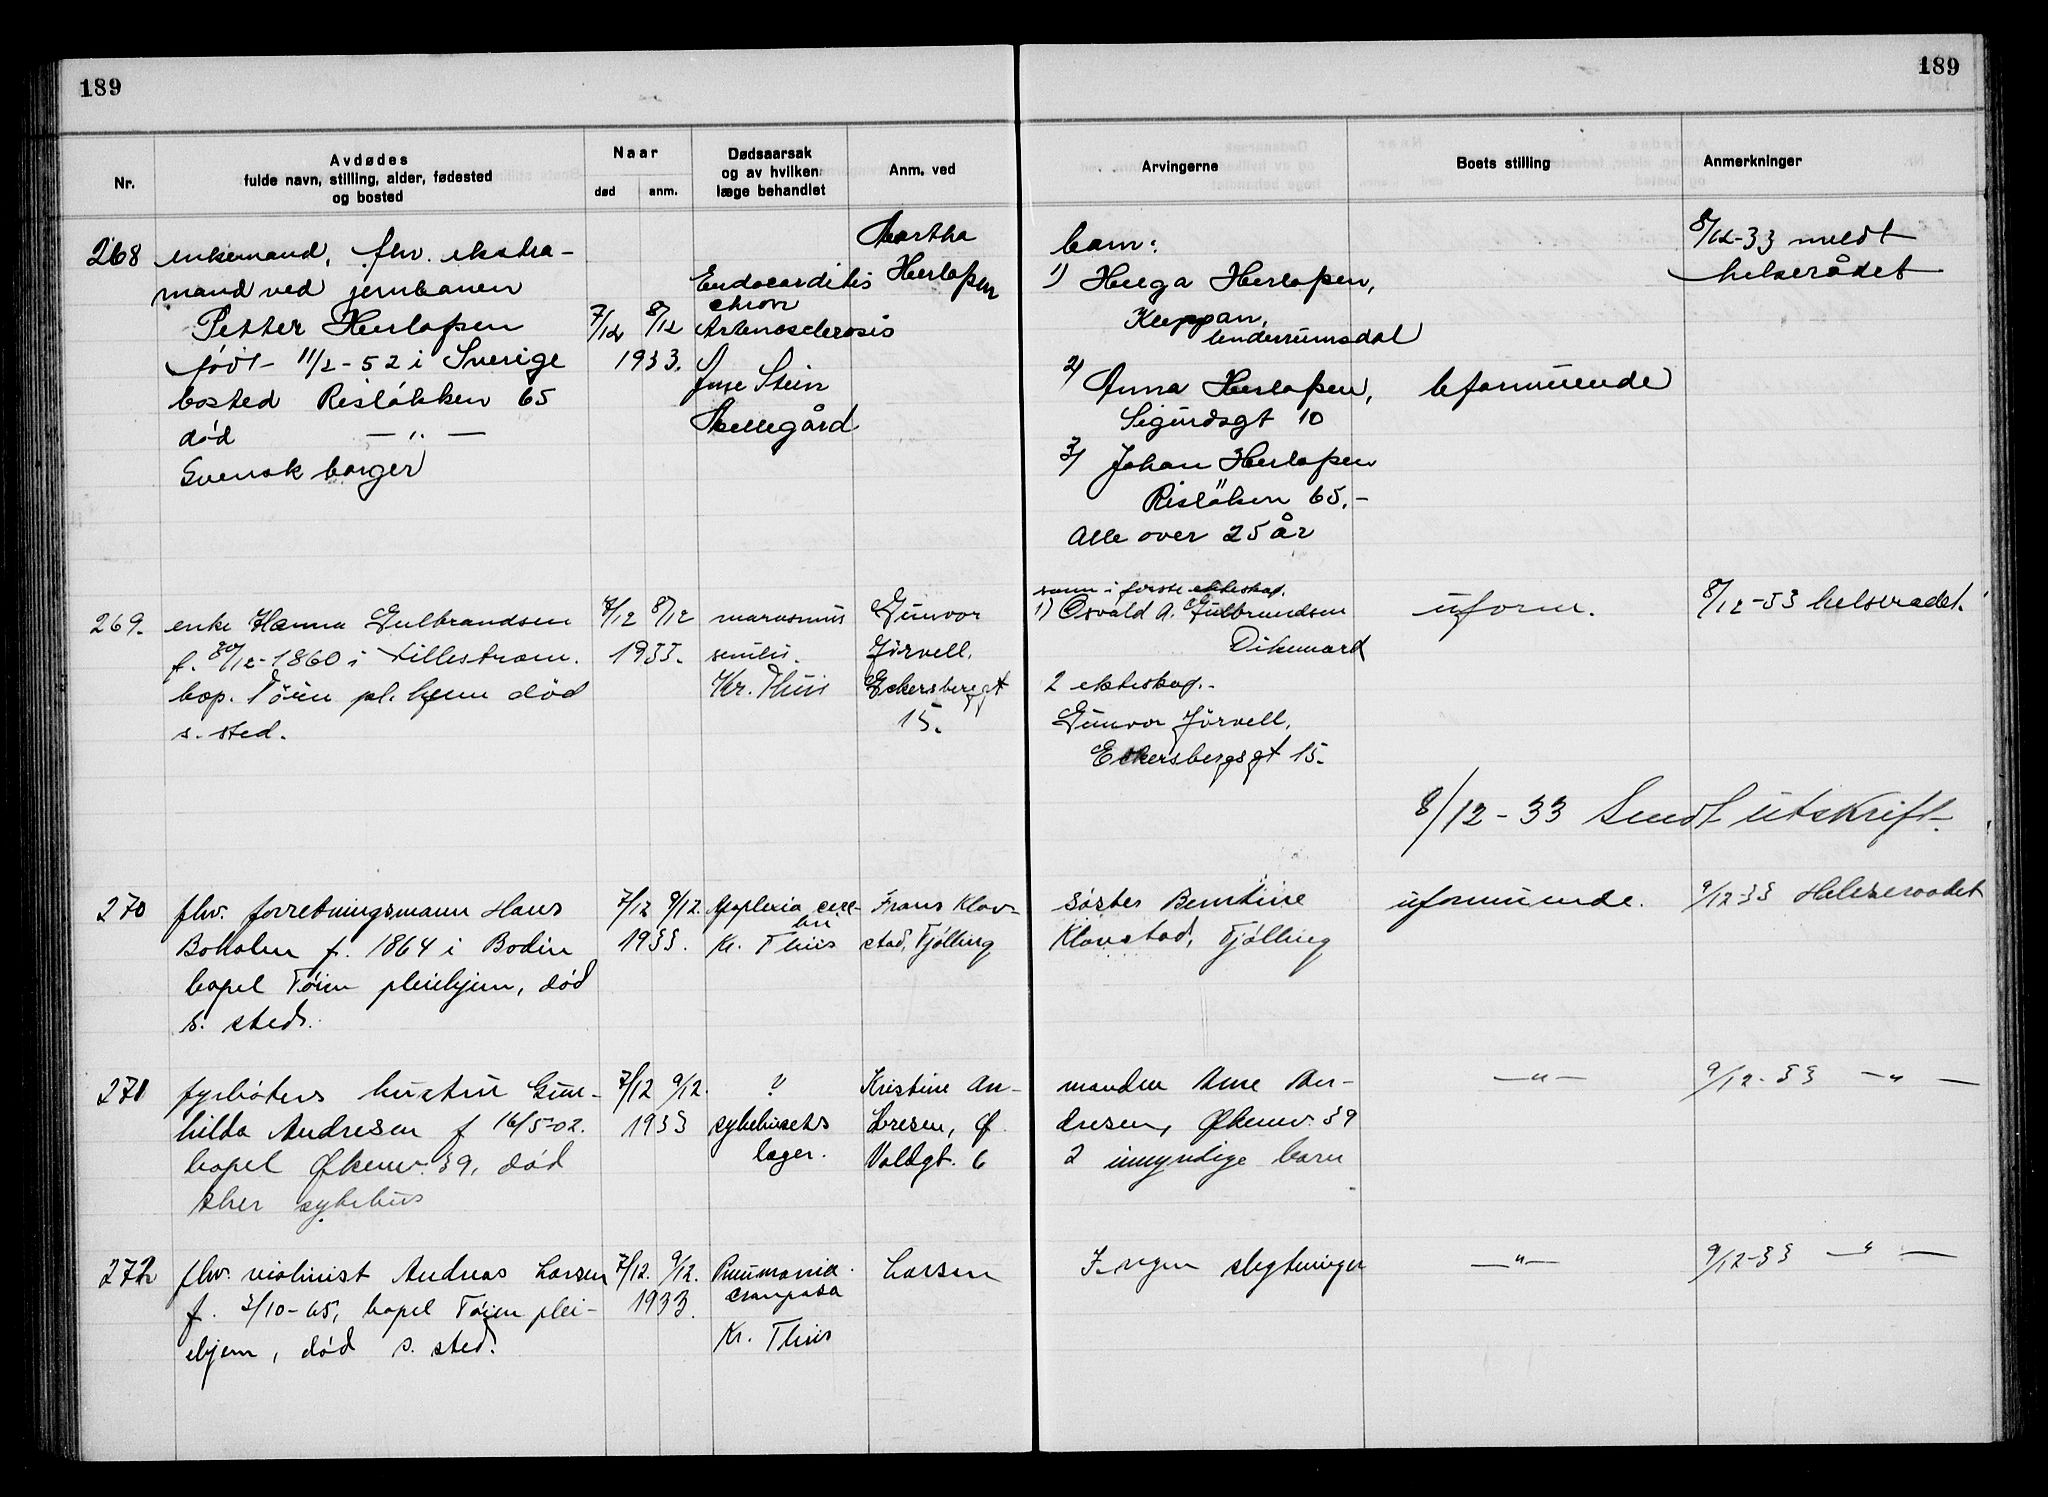 189
189
Nr.
Avdødes
fulde navn, stilling, alder, fødested
og bosted
Naar
død
anm.
Dødsaarsak
og av hvilken
læge behandlet
Anm. ved
Arvingerne
Boets stilling
Anmerkninger
268
enkemand, fhv. ekstra-
mand ved jernbanen
Petter Herlofsen
født 11/2-52 i Sverige
bosted Risløkken 65
død — " —
Svensk borger
7/12 8/12
1933.
Endocarditis
chron
Arteriosclerosis
Stein
Møllegård
Martha
Herlofsen
barn:
1) Helga Herlofsen,
Kleppan,
2) Anna Herlofsen,
Sigurdsgt 10
3) Johan Herlofsen
Risløken 65.-
Alle over 25 år
uformuende
8/12-33 meldt
helserådet
269.
enke Hanna Gulbrandsen
f. 30/12-1860 i Lillestrøm.
bop. Tøien pl. hjem død
s. sted.
7/12 8/12
1933.
marasmus
senilis.
Kr. Thiis
Gunvor
Jørvell.
Eckersbergsgt
15.
sønn i første ekteskap.
1) Osvald A. Gulbrandsen
Dikemark
2 ekteskap.-
Gunvor Jørvell,
Eckersbergsgt 15.
uform.
8/12-33 helseradet.
8/12-33 Sendt utskrift.
270
fhv. forretningsmann Hans
Boholm f. 1864 i Bodin
bopel Tøien pleiehjem, død
s. sted.
7/12 9/12.
1933.
Apoplexia cere-
bri
Kr. Thiis
Frans Klav-
stad, Tjølling
Søster Berntine
Klavstad, Tjølling
uformuende.
9/12-33 Helseraadet
271
fyrbøters hustru Gun-
hilda Andresen f 16/5-02.
bopel Økernv. 39, død
sykehus
7/12 9/12.
1933
?
sykehusets
læger.
Kristine An-
dresen, Ø.
Voldgt. 6
manden Arne An-
dresen, Økernv. 39
2 umyndige barn
—"—
9/12-33 —"—
272
fhv. violinist Andreas Larsen
f. 3/10-65, bopel Tøien plei-
ehjem, død s. sted.
7/12. 9/12.
1933.
Pneumonia
crouposa
Kr. Thiis
Larsen
Ingen slegtninger
—"—
9/12-33 —"—